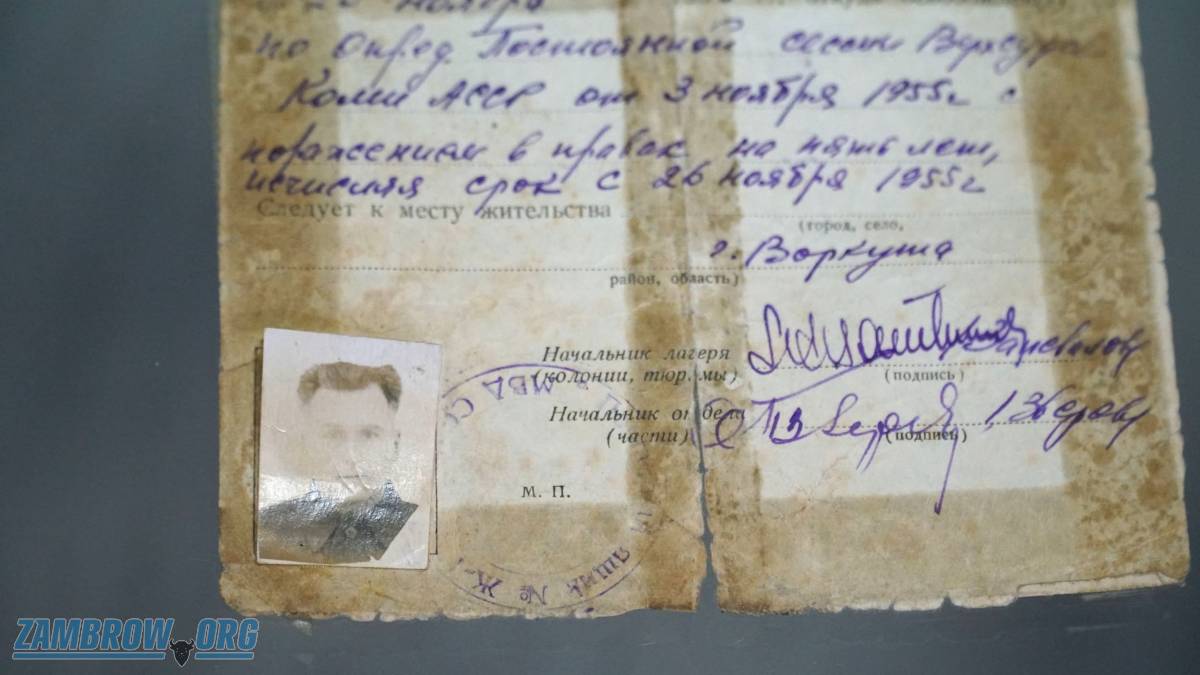 ноября
по Опред. Постоянной сессии Верхсуда
Коми АССР от 3 ноября 1955 г с
поражением в правах на пять лет,
исчисляя срок с 26 ноября 1955 г
Следует к месту жительства
(город, село,
г. Воркута
район, область)
Начальник лагеря
(колонии, тюрьмы)
(подпись)
Начальник отдела
(части)
(подпись)
М. П.
МВД С
№ Ж-
ZAMBROW.ORG